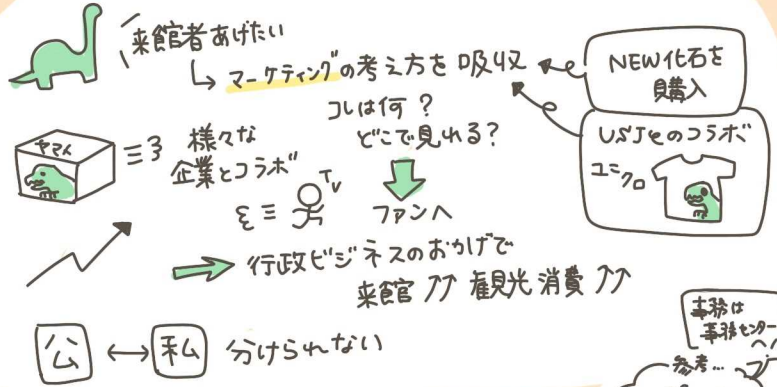 来館者あげたい
マーケティングの考え方を吸収
NEW化石を
購入
USJとのコラボ
ユニクロ
コレは何?
どこで見れる?
ヤマト
様々な
企業とコラボ
TV
ファンへ
行政ビジネスのおかげで
来館↑↑ 観光消費↑↑
公 ↔ 私 分けられない
事務は
事務センターへ
参考...